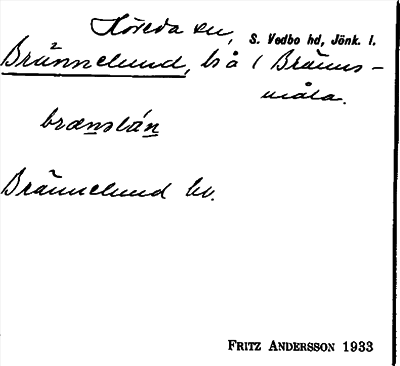 Höreda sn,
S. Vedbo hd, Jönk. l.
Brännelund, ls å 1 Bränns-
måla.
brænslán
Brännelund lv.
FRITZ ANDERSSON 1933